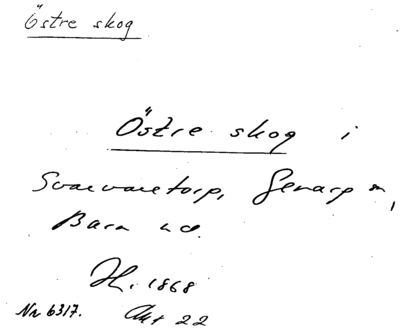 Östre skog
Östre skog i
Svarvaretorp, Genarp sn,
Bara hd.
H. 1868
Nr 6317. Akt 22